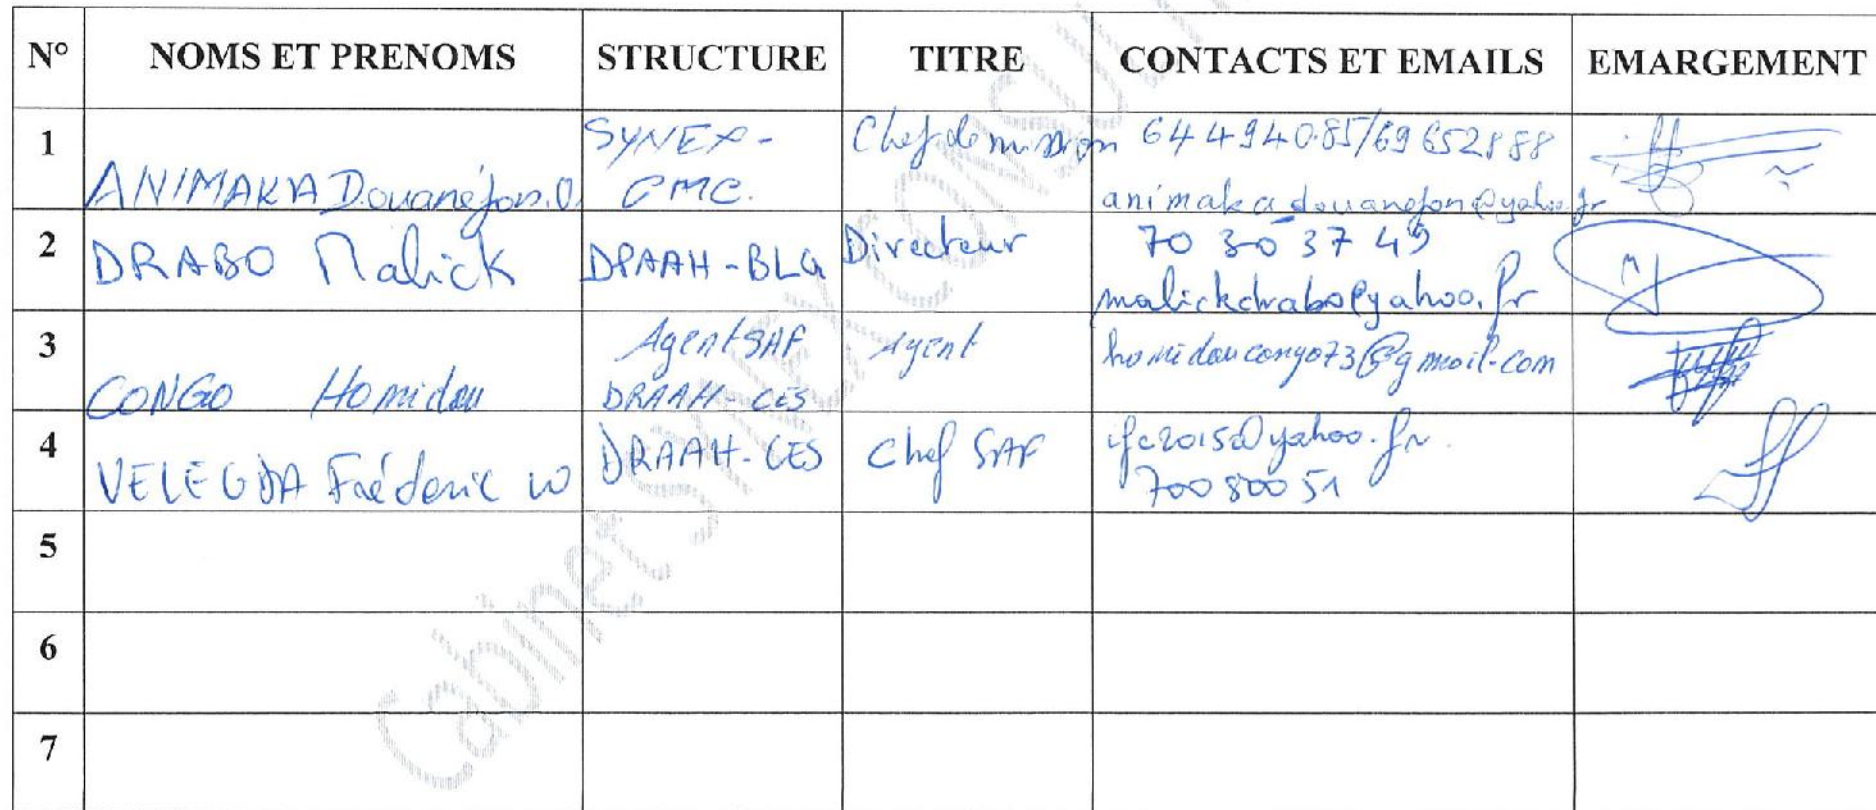 N° NOMS ET PRENOMS STRUCTURE TITRE CONTACTS ET EMAILS EMARGEMENT
1 ANIMAKA Douanéfon.O. SYNEX-CMC. Chef de mission 64494085/69652888
animakadouanefon@yahoo.fr
2 DRABO Malick DPAAH-BLG Directeur 70 30 37 49
malickdrabo@yahoo.fr
3 CONGO Homidou Agent SAF DRAAH-CES Agent homidoucongo73@gmail.com
4 VELEGDA Frédéric W DRAAH-CES Chef SAF ifc2015@yahoo.fr.
70080051
5
6
7
Cabinet SYNEX CONSULT